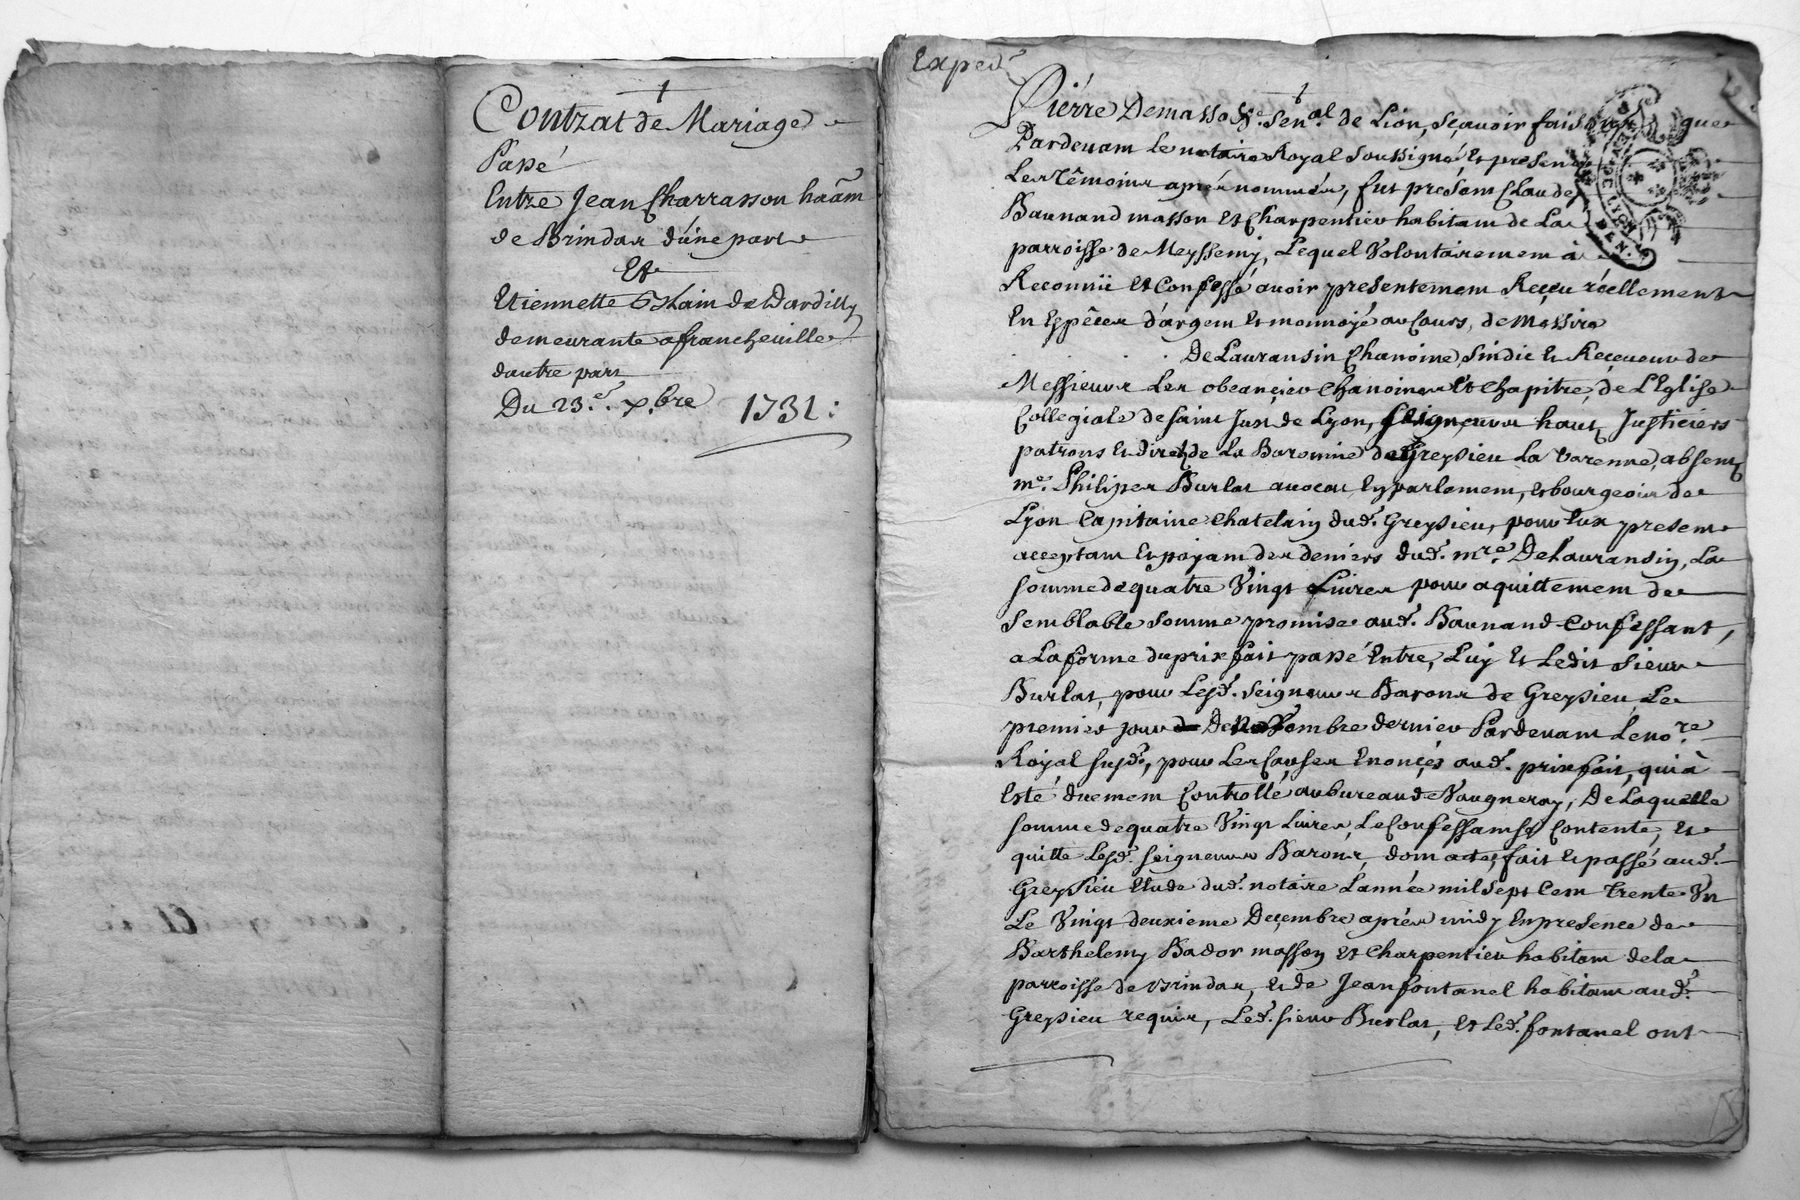 Contrat de Mariage
Passé
Entre Jean Charrasson haâm
de Brindas d'une part
Et
Etiennette de Dardilly
demeurante a francheville
dautre part
Du 23.e Xbre 1731:
Exped.
Pierre Demasso Se.nal de Lion, Sçavoir faisons que
Pardevant Le notaire Royal Soussigné Et presens
Les Têmoins aprés nommés, fut present Claude
Baunand masson Et Charpentier habitant de La
parroisse de Meyssemy, Lequel Volontairement à
Reconnü Et Confessé avoir presentement Reçeu réellement
En Espêces d'argent Et monnoyé au Cours, de Messire
De Lauransin Chanoine, Sindic Et Reçeveur de
Messieurs Les obeançier Chanoines Et Chapitre, de L'Eglise
Collegiale de Saint Just de Lyon, Seigneurs hauts Justiciers
patrons Et directs de La Baronnie de Greysieu La Varenne, absents
me. Philipes Burlat avocat En parlement, Et bourgeois de
Lyon Capitaine Chatelain dud. Greysieu, pour Eux present
acceptant Et payant des deniers dud. mre DeLauransin, La
Somme de quatre Vingt Livres pour aquittement de
Semblable Somme promise aud. Baunand Confessant,
a La forme du prix fait passé Entre, Luy Et Ledit Sieur
Burlat, pour Lesd. Seigneurs Barons de Greysieu Le
premier jour De Novembre dernier Pardevant Le nore
Royal Susd., pour Les Causes Enonçés aud. prix fait, qui à
Esté duement Controllé au bureau de Vaugneray, De Laquelle
Somme de quatre Vingt Livres, Le Confessant Se Contente, Et
quitte Lesd. Seigneurs Barons, dont acte, fait Et passé aud.
Greysieu Etude dud. notaire L'année mil Sept Cent Trente Un
Le Vingt deuxieme Deçembre aprés midy En presence de
Barthelemy Bador masson Et Charpentier habitant de la
parroisse de Brindas, Et de Jean fontanel habitant aud.
Greysieu requis, Led. Sieur Burlat, Et Led. fontanel ont